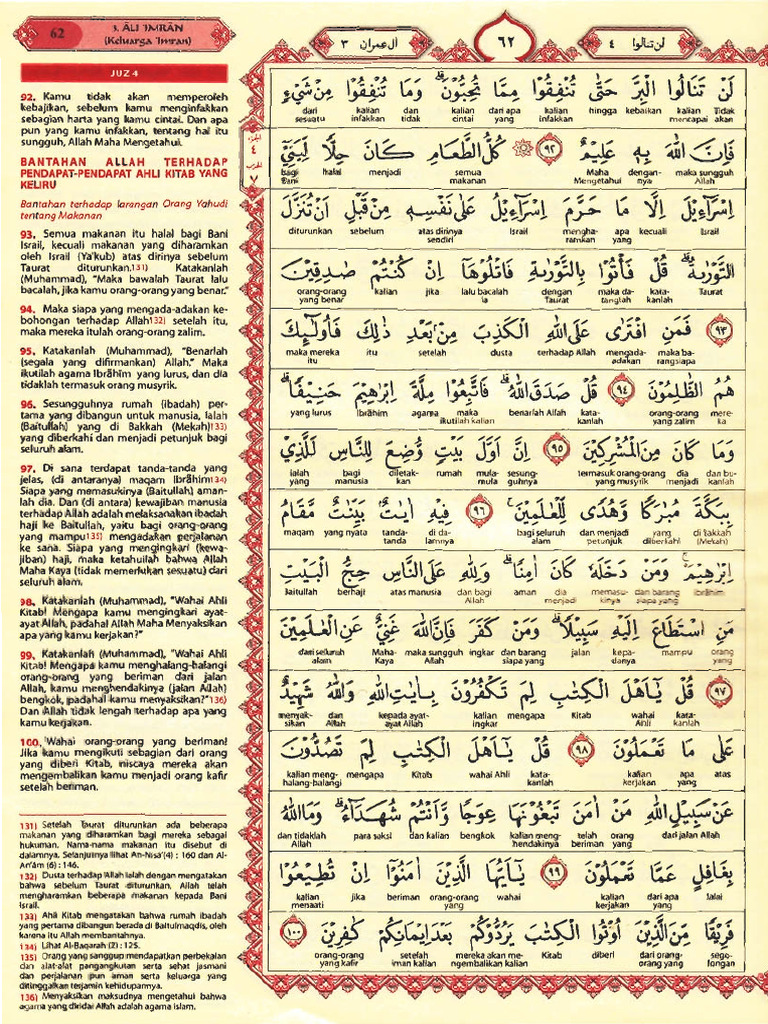 62
3. ĀLI 'IMRĀN
(Keluarga 'Imran)
آل عمران ٣
٦٢
لن تنالوا ٤
JUZ 4
92. Kamu tidak akan memperoleh
kebajikan, sebelum kamu menginfakkan
sebagian harta yang kamu cintai. Dan apa
pun yang kamu infakkan, tentang hal itu
sungguh, Allah Maha Mengetahui.
BANTAHAN ALLAH TERHADAP
PENDAPAT-PENDAPAT AHLI KITAB YANG
KELIRU
Bantahan terhadap larangan Orang Yahudi
tentang Makanan
93. Semua makanan itu halal bagi Bani
Israil, kecuali makanan yang diharamkan
oleh Israil (Ya'kub) atas dirinya sebelum
Taurat diturunkan.131) Katakanlah
(Muhammad), "Maka bawalah Taurat lalu
bacalah, jika kamu orang-orang yang benar."
94. Maka siapa yang mengada-adakan ke-
bohongan terhadap Allah132) setelah itu,
maka mereka itulah orang-orang zalim.
95. Katakanlah (Muhammad), "Benarlah
(segala yang difirmankan) Allah." Maka
ikutilah agama Ibrāhīm yang lurus, dan dia
tidaklah termasuk orang musyrik.
96. Sesungguhnya rumah (ibadah) per-
tama yang dibangun untuk manusia, ialah
(Baitullah) yang di Bakkah (Mekah)133)
yang diberkahi dan menjadi petunjuk bagi
seluruh alam.
97. Di sana terdapat tanda-tanda yang
jelas, (di antaranya) maqam Ibrāhīm134)
Siapa yang memasukinya (Baitullah) aman-
lah dia. Dan (di antara) kewajiban manusia
terhadap Allah adalah melaksanakan ibadah
haji ke Baitullah, yaitu bagi orang-orang
yang mampu135) mengadakan perjalanan
ke sana. Siapa yang mengingkari (kewa-
jiban) haji, maka ketahuilah bahwa Allah
Maha Kaya (tidak memerlukan sesuatu) dari
seluruh alam.
98. Katakanlah (Muhammad), "Wahai Ahli
Kitab! Mengapa kamu mengingkari ayat-
ayat Allah, padahal Allah Maha Menyaksikan
apa yang kamu kerjakan?"
99. Katakanlah (Muhammad), "Wahai Ahli
Kitab! Mengapa kamu menghalang-halangi
orang-orang yang beriman dari jalan
Allah, kamu menghendakinya (jalan Allah)
bengkok, padahal kamu menyaksikan?"136)
Dan Allah tidak lengah terhadap apa yang
kamu kerjakan.
100. Wahai orang-orang yang beriman!
Jika kamu mengikuti sebagian dari orang
yang diberi Kitab, niscaya mereka akan
mengembalikan kamu menjadi orang kafir
setelah beriman.
131) Setelah Taurat diturunkan ada beberapa
makanan yang diharamkan bagi mereka sebagai
hukuman. Nama-nama makanan itu disebut di
dalamnya. Selanjutnya lihat An-Nisa'(4) : 160 dan Al-
An'ām (6) : 146.
132) Dusta terhadap Allah ialah dengan mengatakan
bahwa sebelum Taurat diturunkan, Allah telah
mengharamkan beberapa makanan kepada Bani
Israil.
133) Ahli Kitab mengatakan bahwa rumah ibadah
yang pertama dibangun berada di Baitulmaqdis, oleh
karena itu Allah membantahnya.
134) Lihat Al-Baqarah (2) : 125.
135) Orang yang sanggup mendapatkan perbekalan
dan alat-alat pengangkutan serta sehat jasmani
dan perjalanan pun aman serta keluarga yang
ditinggalkan terjamin kehidupannya.
136) Menyaksikan maksudnya mengetahui bahwa
agama yang diridai Allah adalah agama islam.
الجزء
٤
الحزب
٧
لَنْ تَنَالُوا الْبِرَّ حَتّٰى تُنْفِقُوْا مِمَّا تُحِبُّوْنَۗ وَمَا تُنْفِقُوْا مِنْ شَيْءٍ
Tidak akan kalian mencapai kebaikan hingga kalian infakkan dari apa yang kalian cintai dan tidak kalian infakkan dari sesuatu
فَاِنَّ اللّٰهَ بِهٖ عَلِيْمٌ ٩٢ ۞ كُلُّ الطَّعَامِ كَانَ حِلًّا لِّبَنِيْٓ
maka sungguh Allah dengan-nya Maha Mengetahui semua makanan menjadi halal bagi Bani
اِسْرَاۤءِيْلَ اِلَّا مَا حَرَّمَ اِسْرَاۤءِيْلُ عَلٰى نَفْسِهٖ مِنْ قَبْلِ اَنْ تُنَزَّلَ
Israil kecuali apa yang mengha-ramkan Israil atas dirinya sendiri sebelum diturunkan
التَّوْرٰىةُۗ قُلْ فَأْتُوْا بِالتَّوْرٰىةِ فَاتْلُوْهَآ اِنْ كُنْتُمْ صٰدِقِيْنَ
Taurat kata-kanlah maka da-tanglah dengan Taurat lalu bacalah ia jika kalian orang-orang yang benar
٩٣ فَمَنِ افْتَرٰى عَلَى اللّٰهِ الْكَذِبَ مِنْۢ بَعْدِ ذٰلِكَ فَاُولٰۤىِٕكَ
maka ba-rangsiapa mengada-adakan terhadap Allah dusta setelah itu maka mereka itu
هُمُ الظّٰلِمُوْنَ ٩٤ قُلْ صَدَقَ اللّٰهُۗ فَاتَّبِعُوْا مِلَّةَ اِبْرٰهِيْمَ حَنِيْفًاۗ
mere-ka orang-orang yang zalim kata-kanlah benarlah Allah maka ikutilah kalian agama Ibrāhim yang lurus
وَمَا كَانَ مِنَ الْمُشْرِكِيْنَ ٩٥ اِنَّ اَوَّلَ بَيْتٍ وُّضِعَ لِلنَّاسِ لَلَّذِيْ
dan bu-kanlah dia termasuk orang-orang yang musyrik sesung-guhnya mula-mula rumah diletak-kan bagi manusia ialah yang
بِبَكَّةَ مُبٰرَكًا وَّهُدًى لِّلْعٰلَمِيْنَۚ ٩٦ فِيْهِ اٰيٰتٌۢ بَيِّنٰتٌ مَّقَامُ
di Bakkah (Mekah) yang diberkahi dan menjadi petunjuk bagi seluruh alam di da-lamnya tanda-tanda yang nyata maqam
اِبْرٰهِيْمَ ەۚ وَمَنْ دَخَلَهٗ كَانَ اٰمِنًاۗ وَلِلّٰهِ عَلَى النَّاسِ حِجُّ الْبَيْتِ
Ibrāhim dan barang siapa yang memasu-kinya dia menjadi aman dan bagi Allah atas manusia berhaji Baitullah
مَنِ اسْتَطَاعَ اِلَيْهِ سَبِيْلًاۗ وَمَنْ كَفَرَ فَاِنَّ اللّٰهَ غَنِيٌّ عَنِ الْعٰلَمِيْنَ
orang yang mampu kepa-danya jalan dan barang siapa yang ingkar maka sungguh Allah Maha-Kaya dari seluruh alam
٩٧ قُلْ يٰٓاَهْلَ الْكِتٰبِ لِمَ تَكْفُرُوْنَ بِاٰيٰتِ اللّٰهِ وَاللّٰهُ شَهِيْدٌ
kata-kanlah wahai Ahli Kitab mengapa kalian ingkar kepada ayat-ayat Allah dan Allah menyak-sikan
عَلٰى مَا تَعْمَلُوْنَ ٩٨ قُلْ يٰٓاَهْلَ الْكِتٰبِ لِمَ تَصُدُّوْنَ
atas apa yang kalian kerjakan kata-kanlah wahai Ahli Kitab mengapa kalian meng-halang-balangi
عَنْ سَبِيْلِ اللّٰهِ مَنْ اٰمَنَ تَبْغُوْنَهَا عِوَجًا وَّاَنْتُمْ شُهَدَاۤءُۗ وَمَا اللّٰهُ
dari jalan Allah orang yang telah beriman kalian meng-hendakinya bengkok dan kalian para saksi dan tidaklah Allah
بِغَافِلٍ عَمَّا تَعْمَلُوْنَ ٩٩ يٰٓاَيُّهَا الَّذِيْنَ اٰمَنُوْٓا اِنْ تُطِيْعُوْا
lalai dari apa yang kalian kerjakan wahai orang-orang yang beriman jika kalian menaati
فَرِيْقًا مِّنَ الَّذِيْنَ اُوْتُوا الْكِتٰبَ يَرُدُّوْكُمْ بَعْدَ اِيْمَانِكُمْ كٰفِرِيْنَ ١٠٠
sego-longan dari orang-orang yang diberi Kitab mereka akan me-ngembalikan kalian setelah iman kalian orang-orang yang kafir